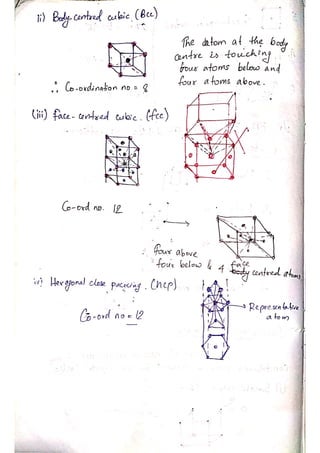 ii) Body centred cubic. (Bcc)
The atom at the body
centre is touching
four atoms below and
four atoms above.
∴ Co-ordination no = 8
(iii) face-centred cubic. (fcc)
Co-ord no. 12
four above
four below & 4 face
body centred atoms
iv) Hexagonal close packing. (hcp)
Co-ord no = 12
Representative
atom